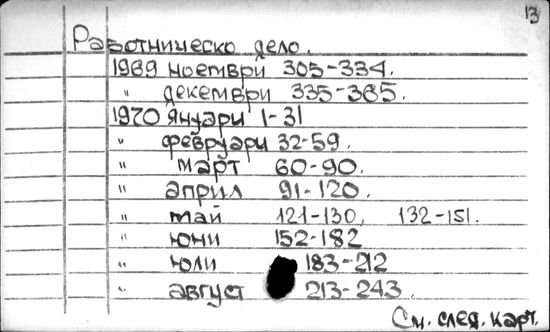 13
Работническо дело.
1969 ноември 305-334.
" декември 335-365.
1970 януари 1-31
" февруари 32-59.
" март 60-90.
" април 91-120.
" май 121-130, 132-151.
" юни 152-182
" юли 183-212
" август 213-243.
См. след. карт.